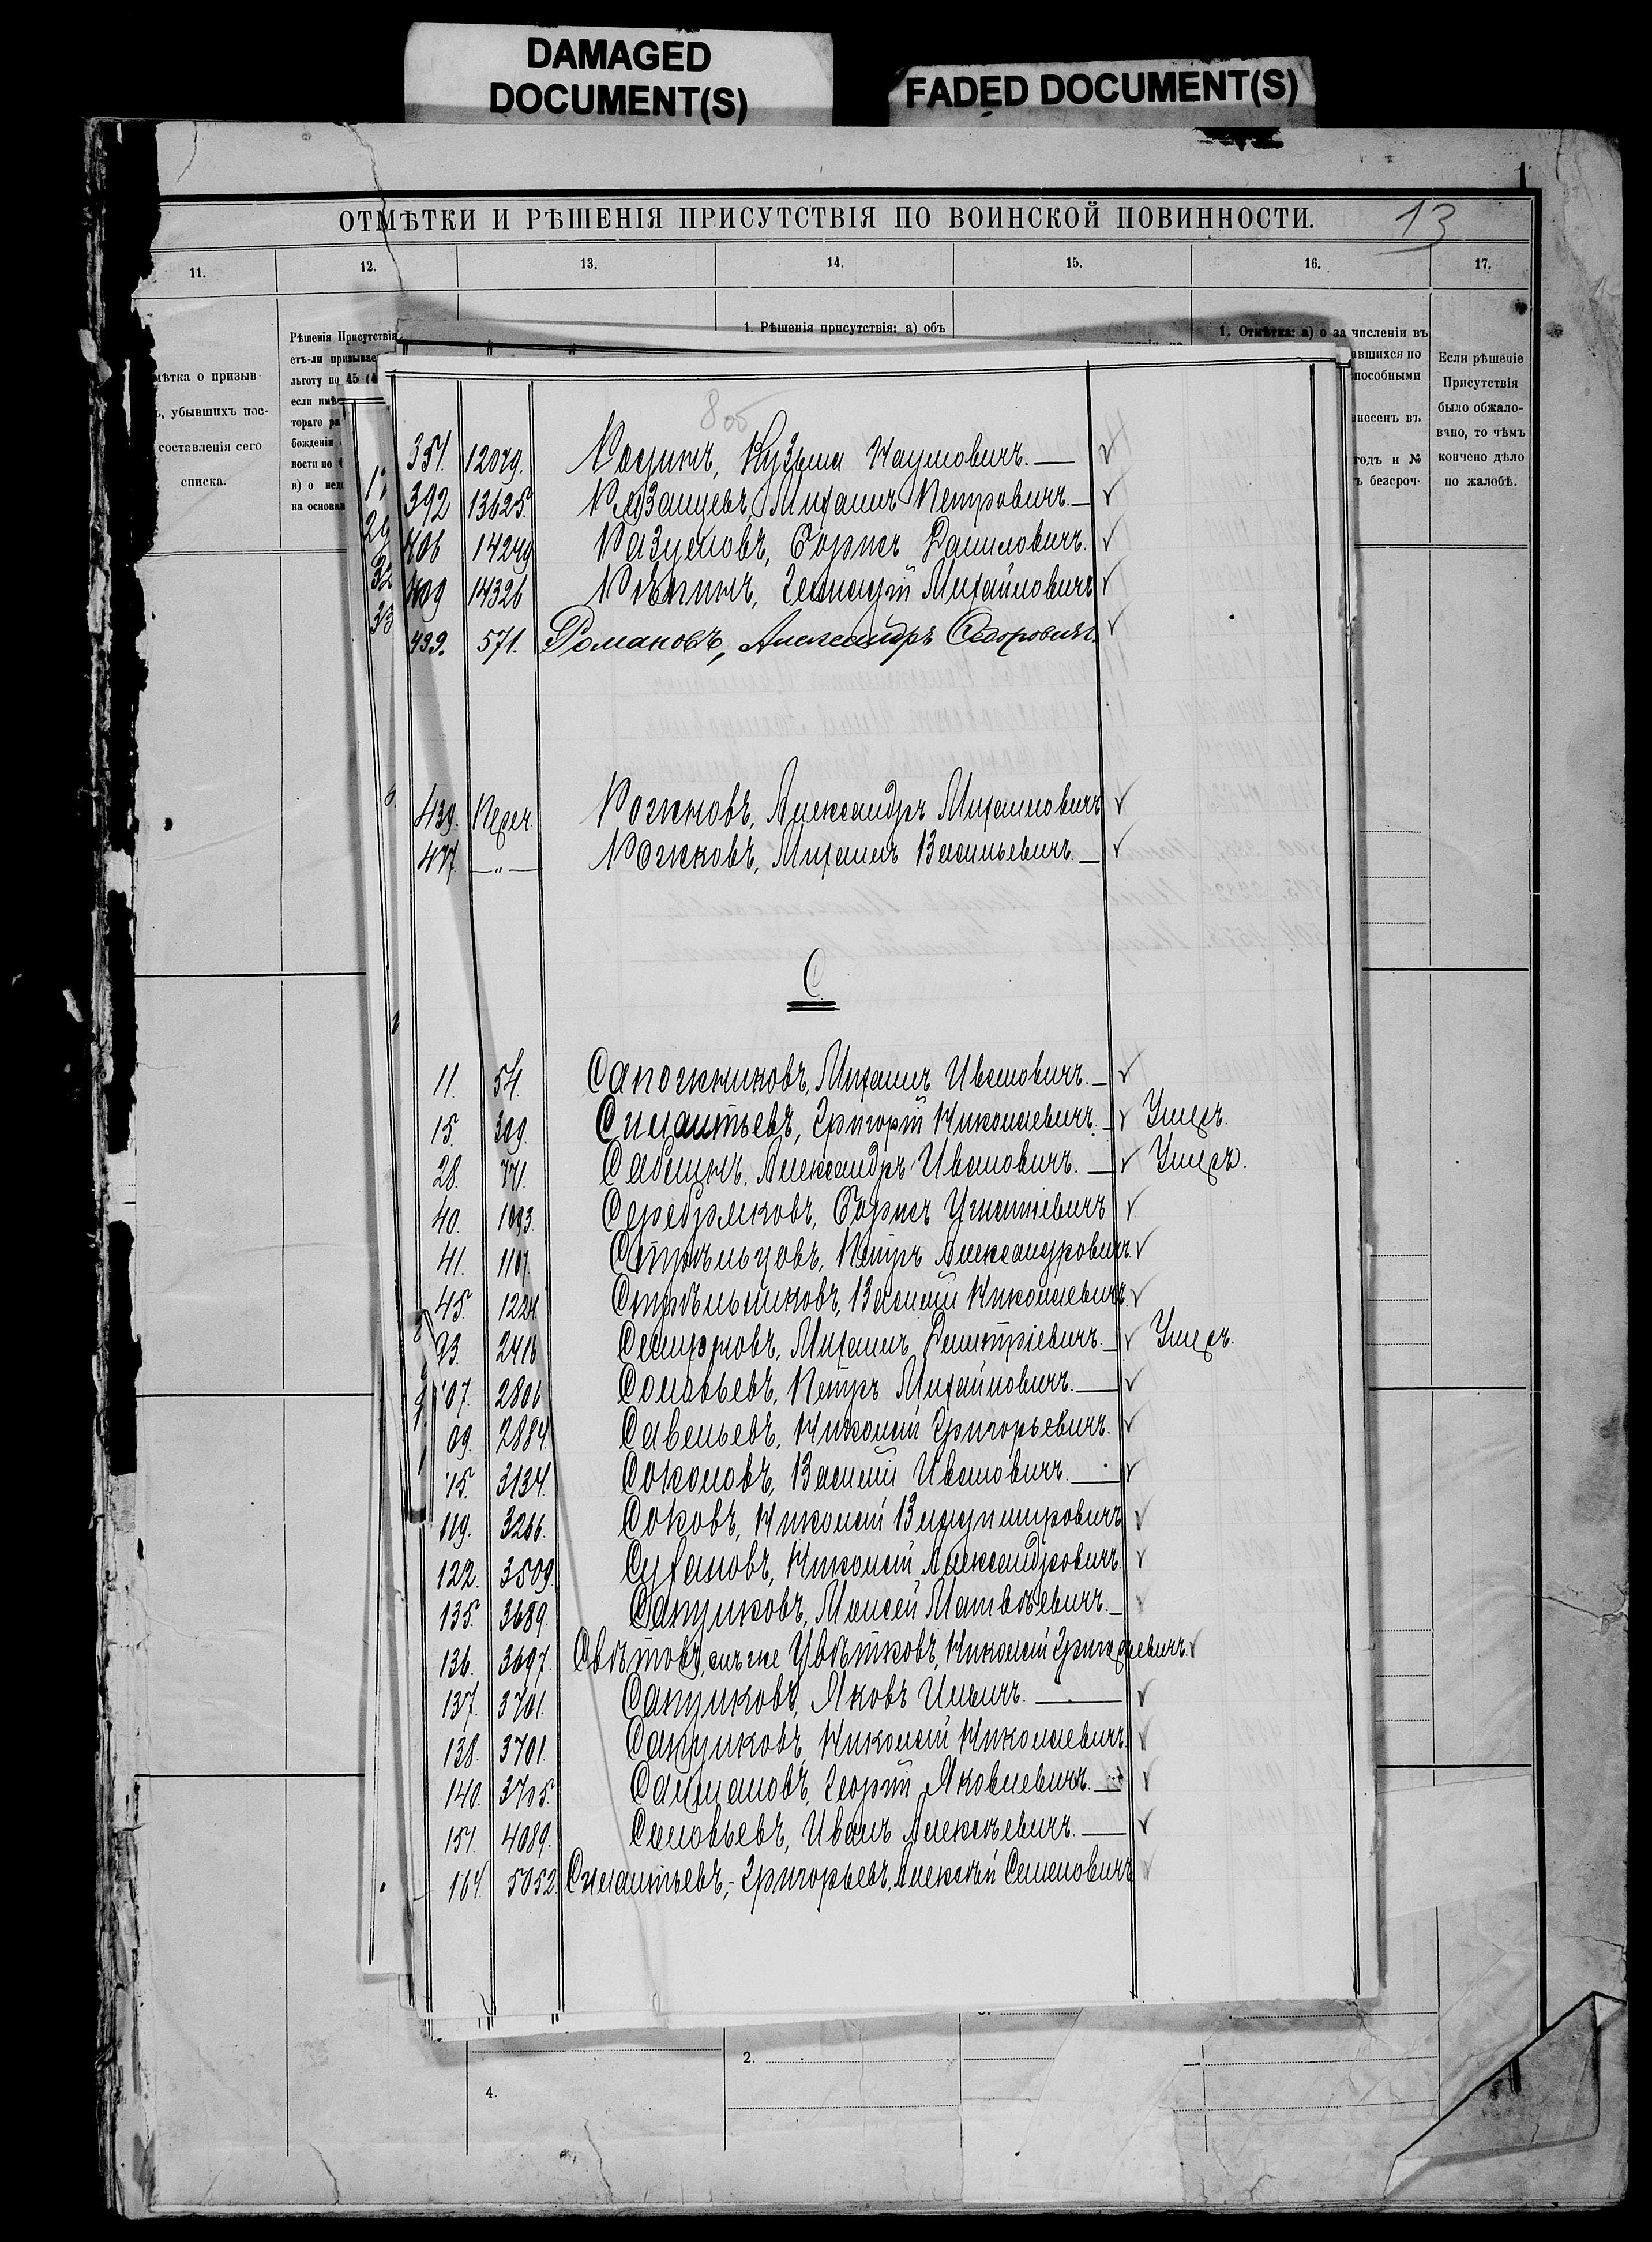 DAMAGED
DOCUMENT(S)
FADED DOCUMENT(S)
ОТМѢТКИ И РѢШЕНІЯ ПРИСУТСТВІЯ ПО ВОИНСКОЙ ПОВИННОСТИ.
13
11. 12. 13. 14. 15. 16. 17.
Рѣшенія Присутствія
етъ-ли призывае
льготу по 45 (4
если имѣ
тораго ра
божденіи
ности по
в) о нед
на основан
мѣтка о призыв
ъ, убывшихъ пос-
составленія сего
списка.
1. Рѣшенія присутствія: а) объ
1. Отмѣтка: а) о зачисленіи въ
авшихся по
пособными
внесенъ въ
годъ и №
ъ безсроч-
Если рѣшеніе
Присутствія
было обжало-
вано, то чѣмъ
кончено дѣло
по жалобѣ.
800
351. 12079. Родинъ, Кузьма Наумовичъ. — ✓
392 13625. Рязанцевъ, Михаилъ Петровичъ. — ✓
406 14249 Разумовъ, Борисъ Даниловичъ. ✓
409 14326 Рѣпинъ, Геннадій Михайловичъ ✓
499. 571. Романовъ, Александръ Ѳедоровичъ. ✓
439. Переч. Рожковъ, Александръ Михаиловичъ ✓
477. — „ — Рожковъ, Михаилъ Васильевичъ. — ✓
С.
11. 54. Сапожниковъ, Михаилъ Ивановичъ. — ✓
15. 309. Силантьевъ, Григорій Николаевичъ. — ✓ Умеръ.
28. 771. Сабецкъ, Александръ Ивановичъ. — ✓ Умеръ.
40. 1093. Серебряковъ, Борисъ Игнатіевичъ ✓
41. 1107. Стрѣльцовъ, Петръ Александровичъ. ✓
45. 1224. Стрѣльниковъ, Василій Николаевичъ. ✓
93. 2416 Смирновъ, Михаилъ Дмитріевичъ. — ✓ Умеръ.
107. 2806 Соловьевъ, Петръ Михайловичъ. — ✓
09. 2884. Савельевъ, Николай Григорьевичъ. ✓
15. 3134. Соколовъ, Василій Ивановичъ. — ✓
119. 3266. Соковъ, Николай Владиміровичъ ✓
122. 3509. Сухановъ, Николай Александровичъ. ✓
135. 3689. Сапуновъ, Моисей Матвѣевичъ. — ✓
136. 3697. Свѣтовъ, онъ же Цвѣтковъ, Николай Григорьевичъ. ✓
137. 3701. Сапуновъ, Яковъ Ильичъ. — ✓
138. 3701. Сапуновъ, Николай Николаевичъ. ✓
140. 3705. Салмановъ, Георгій Яковлевичъ. — ✓
151. 4089. Соловьевъ, Иванъ Алексѣевичъ. — ✓
164. 5052. Силантьевъ,-Григорьевъ, Алексѣй Семеновичъ ✓
2.
4.